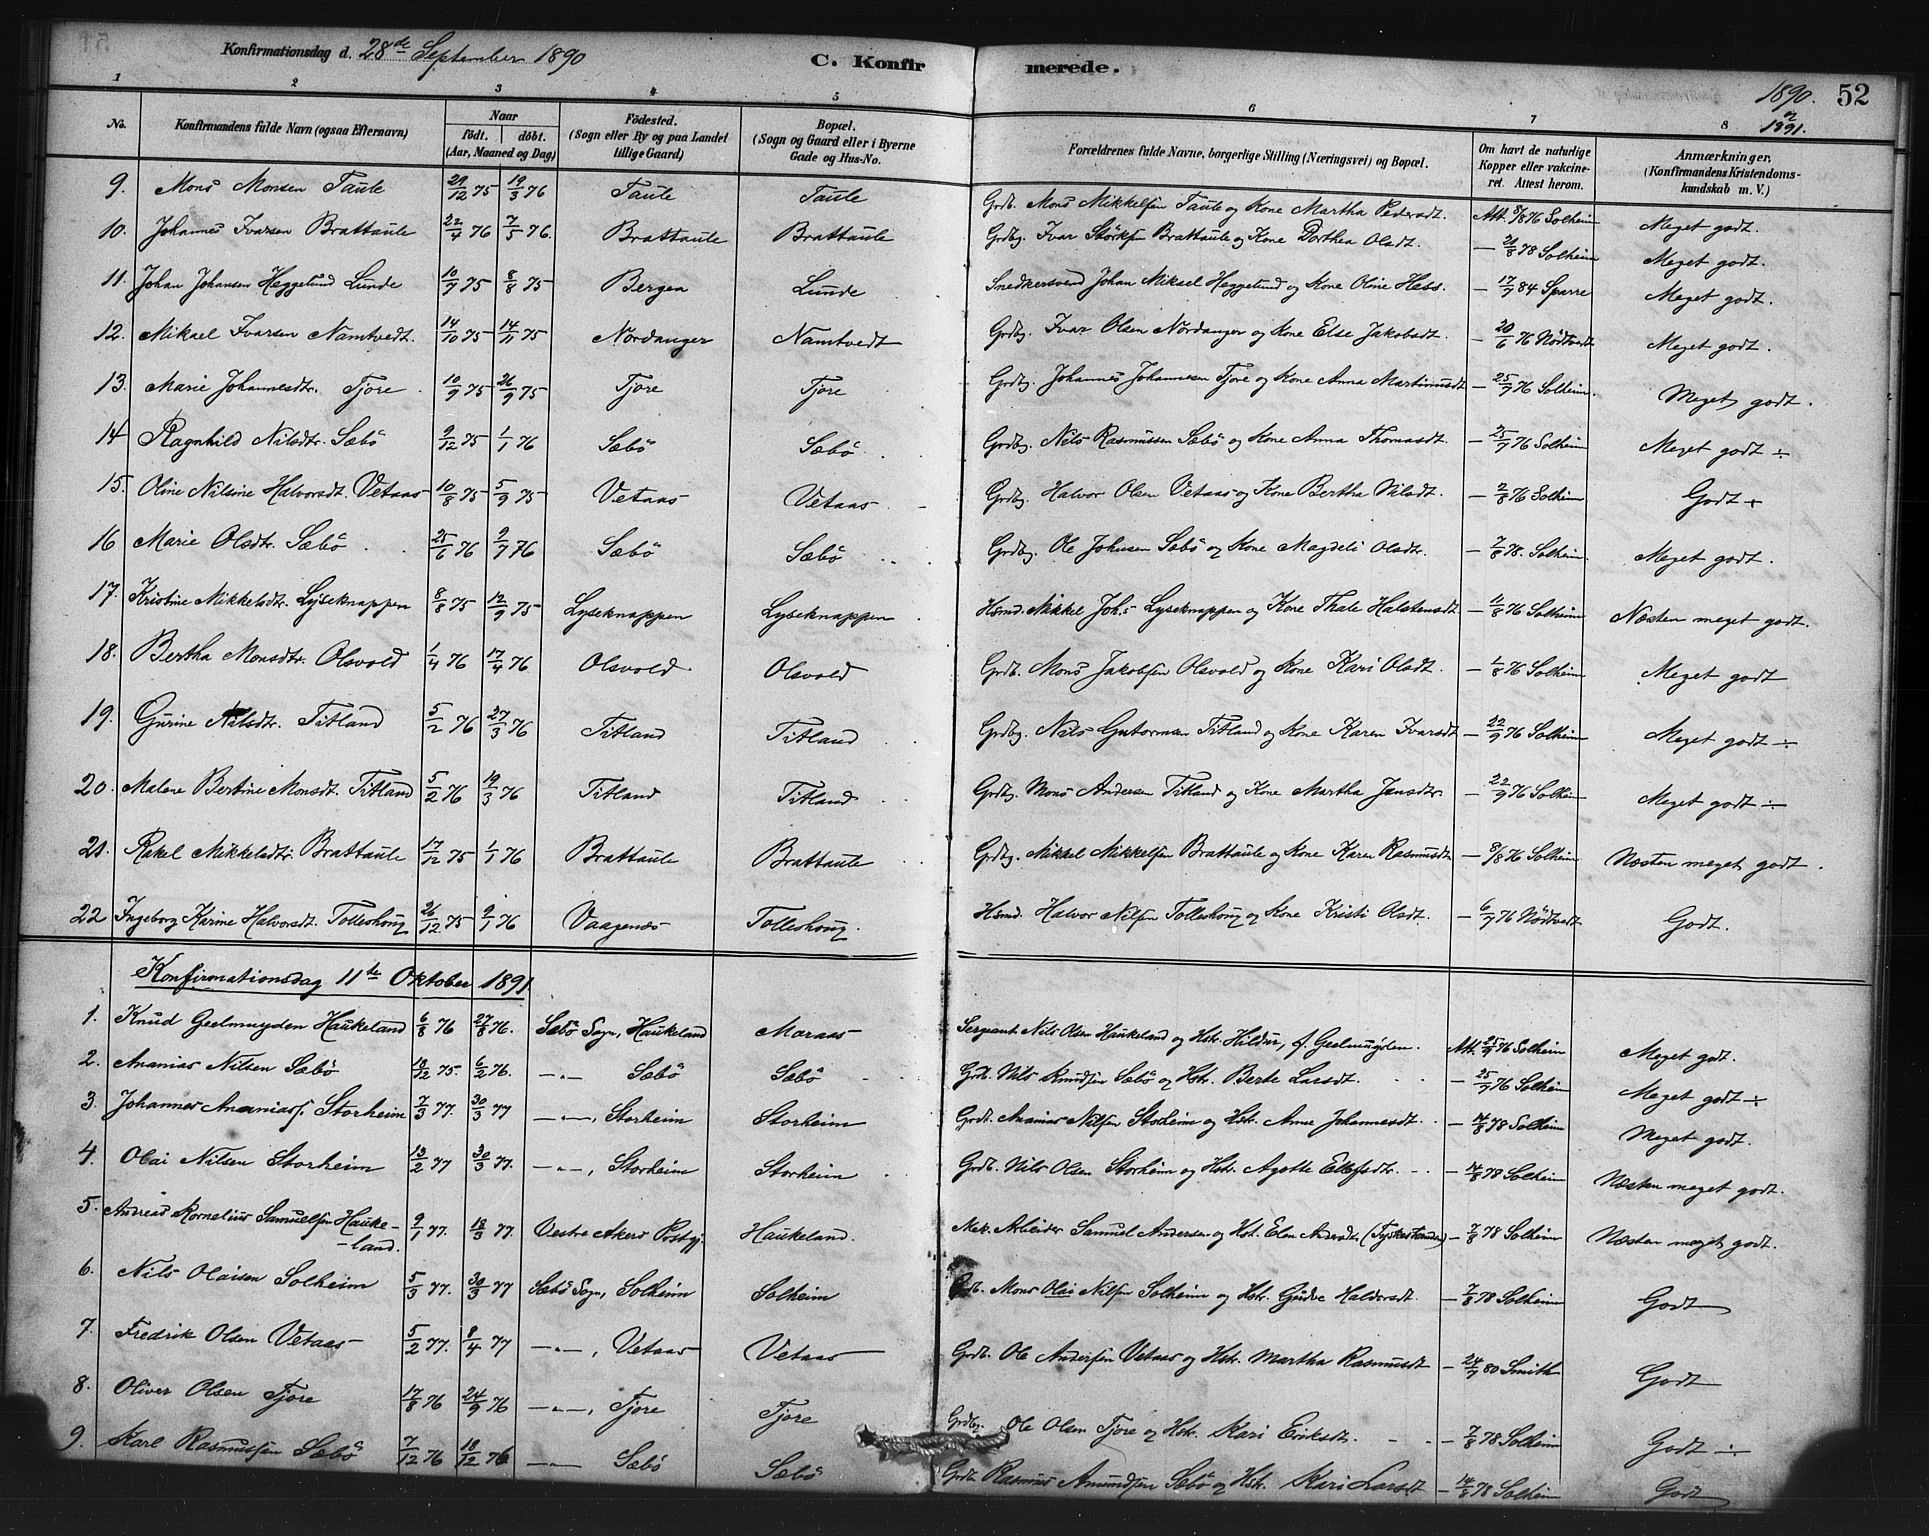 Konfirmationsdag d. 28de September 1890 C. Konfirmerede. 1890 og 1891. 52
1 2 3 4 5 6 7 8
No. Konfirmandens fulde Navn (ogsaa Efternavn) Naar født. døbt. (Aar, Maaned og Dag) Födested. (Sogn eller By og paa Landet tillige Gaard) Bopæl. (Sogn og Gaard eller i Byerne Gade og Hus-No. Forældrenes fulde Navne, borgerlige Stilling (Næringsvei) og Bopæl. Om havt de naturlige Kopper eller vakcineret. Attest herom. Anmærkninger. (Konfirmandens Kristendomskundskab m. V.)
9. Mons Monsen Taule 29/12 75 19/3 76 Taule Taule Grdb. Mons Mikkelsen Taule og Kone Martha Pedersdt. Att. 3/8 76 Solheim Meget godt.
10. Johannes Ivarsen Brattaule 22/4 76 7/5 76. Brattaule Brattaule Grdbg. Ivar Størksen Brattaule og Kone Dorthea Olsdt. — 21/8 78 Solheim Meget godt.
11. Johan Johansen Heggelund Lunde 10/7 75 8/8 75 Bergen Lunde Snedkersvend Johan Mikael Heggelund og Kone Oline Hess. — 17/9 84 Sparre Meget godt.
12. Mikael Ivarsen Namtvedt. 14/10 75 14/11 75 Nordanger Namtvedt Grdbg. Ivar Olsen Nordanger og Kone Else Jakobsdt. — 20/6 76 Nødtvedt Meget godt.
13. Marie Johannesdtr. Tjore 10/9 75 26/9 75 Tjore Tjore Grdbg. Johannes Johannesen Tjore og Kone Anna Martinusdt — 25/9 76 Solheim. Meget godt.
14 Ragnhild Nilsdtr. Sæbö 9/12 75 1/1 76 Sæbö Sæbö Grdbg. Nils Rasmussen Sæbö og Kone Anna Thomasdt. — 25/9 76 Solheim Meget godt ÷
15. Oline Nilsine Halvorsdt. Vetaas 10/8 75 5/9 75 Vetaas Vetaas Grdbg. Halvor Olsen Vetaas og Kone Bertha Nilsdt. — 2/8 76 Solheim Godt +
16 Marie Olsdtr. Sæbö 25/6 76 9/7 76 Sæbö Sæbö Grdbg. Ole Johnsen Sæbö og Kone Magdeli Olsdtr. — 7/8 78. Solheim Meget godt.
17. Kristine Mikkelsdtr. Lyseknappen 8/8 75 12/9 75 Lyseknappen Lyseknappen Hsmd. Mikkel Joh.s Lyseknappen og Kone Thale Halstensdt — 11/8 76 Solheim Næsten meget godt.
18. Bertha Monsdtr. Olsvold 1/4 76 17/4 76 Olsvold Olsvold Grdb. Mons Jakobsen Olsvold og Kone Kari Olsdt. — 1/8 76 Solheim Meget godt
19. Gurine Nilsdtr. Titland 5/2 76 27/3 76 Titland Titland Grdbg. Nils Gutormsen Titland og Kone Karen Ivarsdt — 22/9 76 Solheim Meget godt ÷
20. Malene Bertine Monsdt. Titland 5/2 76 19/3 76 Titland Titland Grdbg. Mons Andersen Titland og Kone Martha Jansdtr — 22/9 76 Solheim Meget godt ÷
21. Rakel Mikkelsdtr. Brattaule 17/12 75 1/1 76 Brattaule Brattaule Grdbg. Mikkel Mikkelsen Brattaule og Kone Karen Rasmusdt — 3/8 76 Solheim Næsten meget godt.
22 Ingeborg Karine Halvorsdt. Tolleshoug 26/12 75 9/1 76 Vaagenes Tolleshoug. Hsmd. Halvor Nilsen Tolleshoug og Kone Kristi Olsdt. — 6/7 76 Nødtvedt Godt.
Konfirmationsdag 11te Oktober 1891.
1. Knud Geelmuyden Haukeland 6/8 76 27/8 76. Sæbö Sogn, Haukeland Moraas Sergeant Nils Olsen Haukeland og Hstr. Hildur, f. Geelmuyden. Att. 25/9 76 Solheim Meget godt.
2. Ananias Nilsen Sæbö 18/12 75. 6/2 76. —"— Sæbö Sæbö Grdb. Nils Knudsen Sæbö og Hstr. Berte Larsdt. — 25/9 76 Solheim Meget godt ÷
3. Johannes Ananiass. Storheim 7/3 77. 30/3 77 —"—, Storheim Storheim Grdb. Ananias Nilsen Storheim og Hstr. Anne Johannesdt. — 14/8 78 Solheim Meget godt.
4. Olai Nilsen Storheim 13/2 77 30/3 77. —"—, Storheim Storheim Grdb. Nils Olsen Storheim og Hstr. Agotte Ellefsdtr. — 14/8 78 Solheim Næsten meget godt.
5. Andreas Kornelius Samuelsen Haukeland. 9/1 77. 18/3 77. Vestre Akers Prstgj. Haukeland. Mek. Arbeider Samuel Andersen og Hstr. Elen Andersdt. — 7/8 78 Solheim Næsten meget godt.
6. Nils Olaisen Solheim 5/3 77. 30/3 77 Sæbö Sogn, Solheim Solheim Grdb. Mons Olai Nilsen Solheim og Hstr. Gudve Haldorsdt. — 7/8 78 Solheim Godt
7. Fredrik Olsen Vetaas 5/2 77. 8/4 77 —"—, Vetaas Vetaas Grdb. Ole Andersen Vetaas og Hstr. Martha Rasmusdt — 24/9 80 Smith Godt
8. Oliver Olsen Tjore 17/8 76 24/9 76 —"—, Tjore Tjore Grdbg. Ole Olsen Tjore og Hstr. Kari Eriksdt. — 7/8 78 Solheim Godt ÷
9. Karl Rasmussen Sæbö 7/12 76 18/12 76 —"— Sæbö Sæbö Grdb. Rasmus Amundsen Sæbö og Hstr. Kari Larsdt — 14/8 78 Solheim Godt